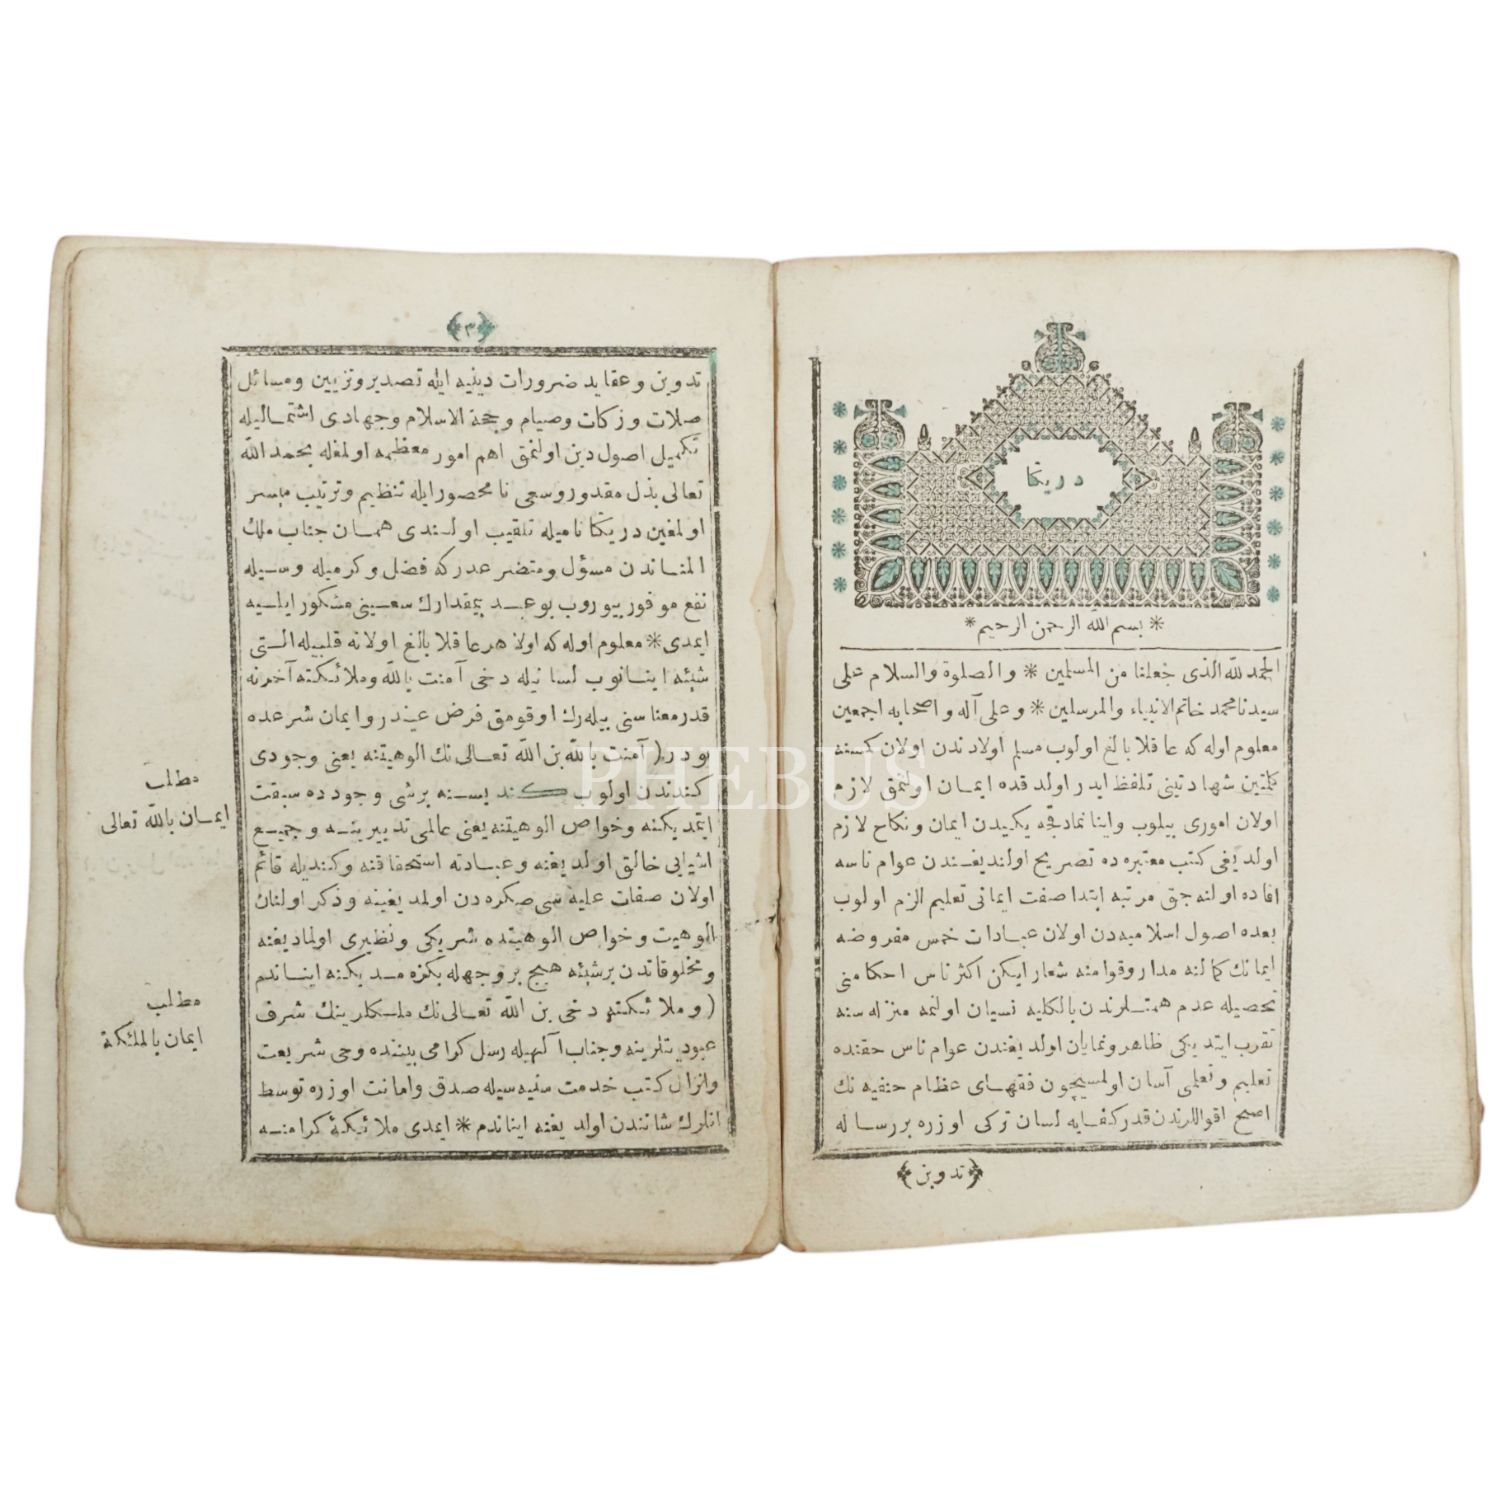 در يكتا
* بسم الله الرحمن الرحيم *
الحمد لله الذى جعلنا من المسلمين * والصلوة والسلام على
سيدنا محمد خاتم الانبياء والمرسلين * وعلى آله واصحابه اجمعين
معلوم اوله كه عاقلا بالغ اولوب مسلم اولادندن اولان كمسنه
كلمتين شهادتينى تلفظ ايدر اولدقده ايمان اولنمق لازم
اولان امورى بيلوب واينانمادقجه يكيدن ايمان ونكاح لازم
اولديغى كتب معتبره ده تصريح اولنديغندن عوام ناسه
افاده اولنه جق مرتبه ابتدا صفت ايمانى تعليم الزم اولوب
بعده اصول اسلاميه دن اولان عبادات خمس مفروضه
ايمانك كمالنه مدار وقوامنه شعار ايكن اكثر ناس احكامنى
تحصيله عدم همتلرندن بالكليه نسيان اولنمه منزله سنه
تقرب ايتديكى ظاهر ونمايان اولديغندن عوام ناس حقنده
تعليم وتعلمى آسان اولمسيچون فقهاى عظام حنفيه نك
اصح اقواللرندن قدر كفايه لسان تركى اوزره بر رساله
﴿تدوين﴾
﴿٣﴾
تدوين وعقايد ضرورات دينيه ايله تصدير وتزيين ومسائل
صلات وزكات وصيام وحجة الاسلام وجهادى اشتماليله
تكميل اصول دين اولنمق اهم امور معظمه اولمغله بحمد الله
تعالى بذل مقدور وسعى نامحصور ايله تنظيم وترتيب ميسر
اولمغين در يكتا ناميله تلقيب اولندى همان جناب ملك
المناندن مسؤل ومتضرعدركه فضل وكرميله وسيله
نفع موفور بيوروب بو عبد بيمقدارك سعينى مشكور ايليه
ايمدى * معلوم اوله كه اولا هر عاقلا بالغ اولانه قلبيله التى
شيئه اينانوب لسانيله دخى آمنت بالله وملائكته آخرنه
قدر معناسنى بيله رك اوقومق فرض عيندر وايمان شرعده
بودر (آمنت بالله بن الله تعالى نك الوهيتنه يعنى وجودى
كندندن اولوب كند يسنه برشى وجودده سبقت
ايتمديكنه وخواص الوهيتنه يعنى عالمى تدبيرينه وجميع
اشيايى خالق اولديغنه وعبادته استحقاقنه وكنديله قائم
اولان صفات عليه سى صكره دن اولمديغينه وذكر اولنان
الوهيت وخواص الوهيتده شريكى ونظيرى اولماديغنه
ومخلوقاتدن برشيئه هيچ بر وجهله بكزه مديكنه اينانم
(وملائكته دخى بن الله تعالى نك ملكلرينك شرف
عبوديتلرينه وجناب آلهيله رسل كرامى بيننده وحى شريعت
وانزال كتب خدمت سنيه سيله صدق وامانت اوزره توسط
انلرك شانندن اولديغنه اينانم * ايمدى ملائكة كرامنه
مطلب
ايمان بالله تعالى
مطلب
ايمان بالملئكة
PHEBUS